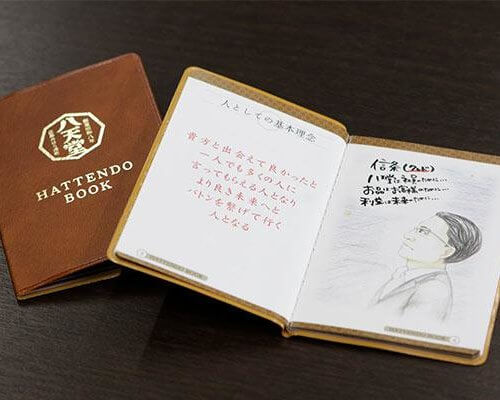 八天堂
HATTENDO
BOOK
人としての基本理念
貴方と出会えて良かったと
一人でも多くの人に
言ってもらえる人となり
より良き未来へと
バトンを繋げて行く
人となる
HATTENDO BOOK
信条(クレド)
八天堂は社員のために…
お品はお客様のために…
利益は未来のために…
HATTENDO BOOK